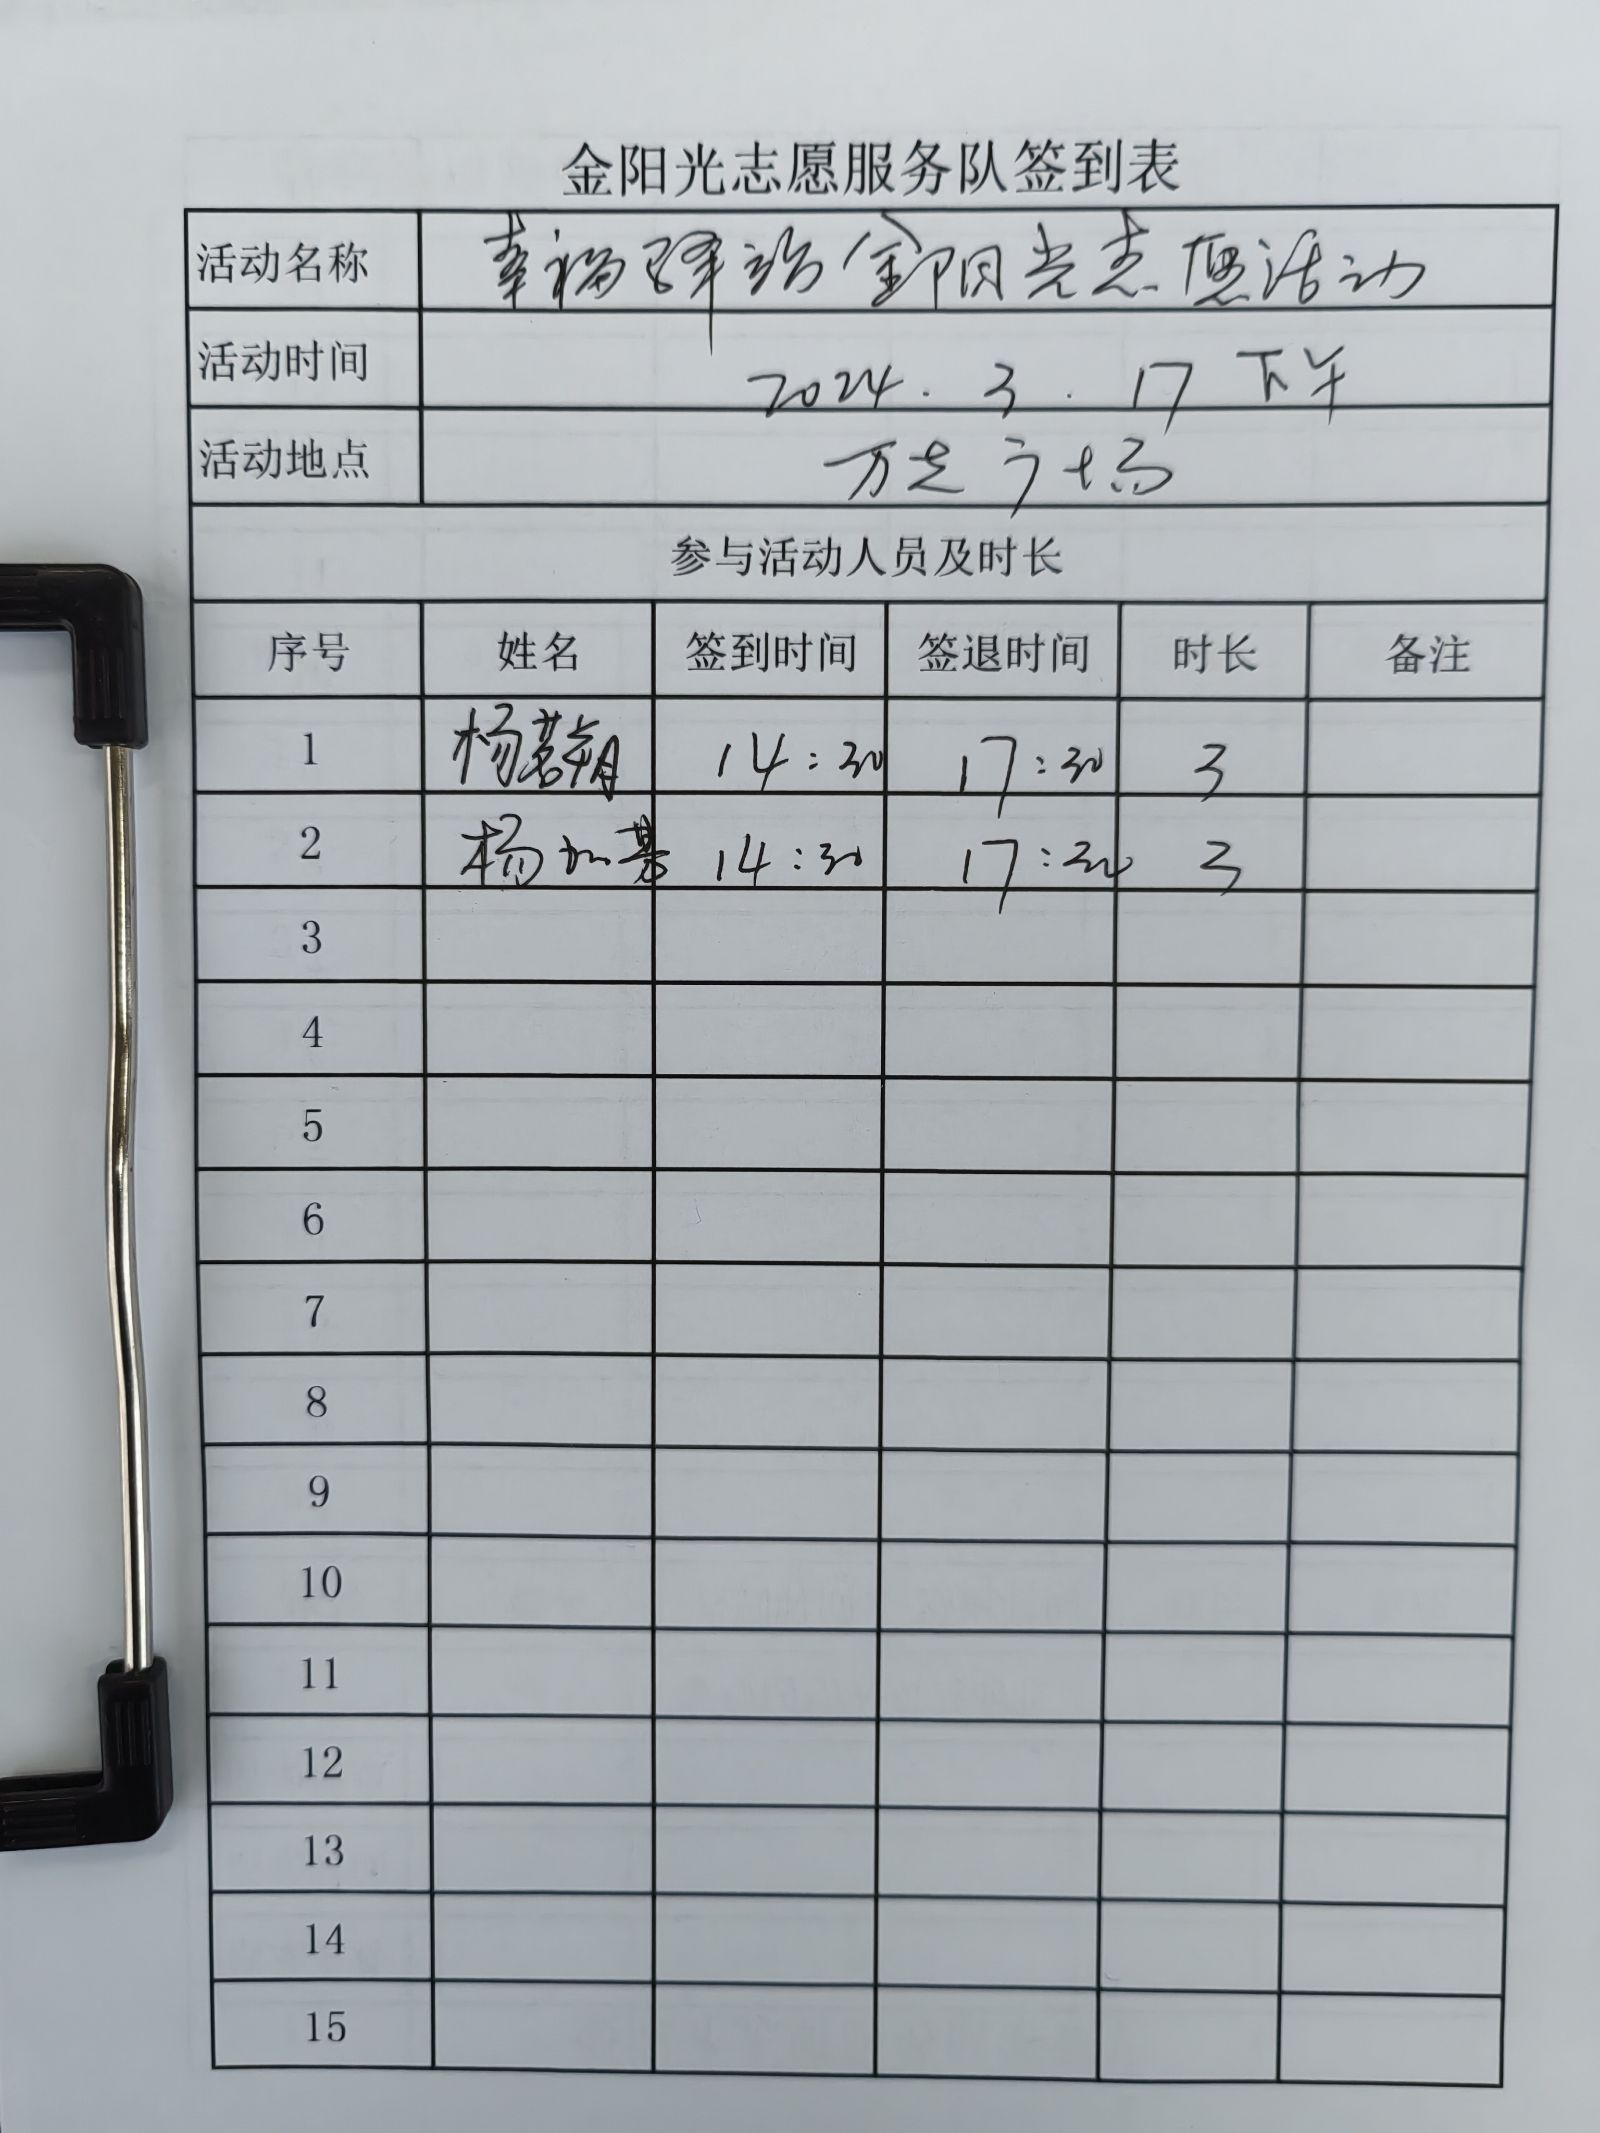 金阳光志愿服务队签到表
活动名称 幸福驿站金阳光志愿活动
活动时间 2024.3.17 下午
活动地点 万达广场
参与活动人员及时长
序号 姓名 签到时间 签退时间 时长 备注
1 杨茗朔 14:30 17:30 3
2 杨 14:30 17:30 3
3
4
5
6
7
8
9
10
11
12
13
14
15